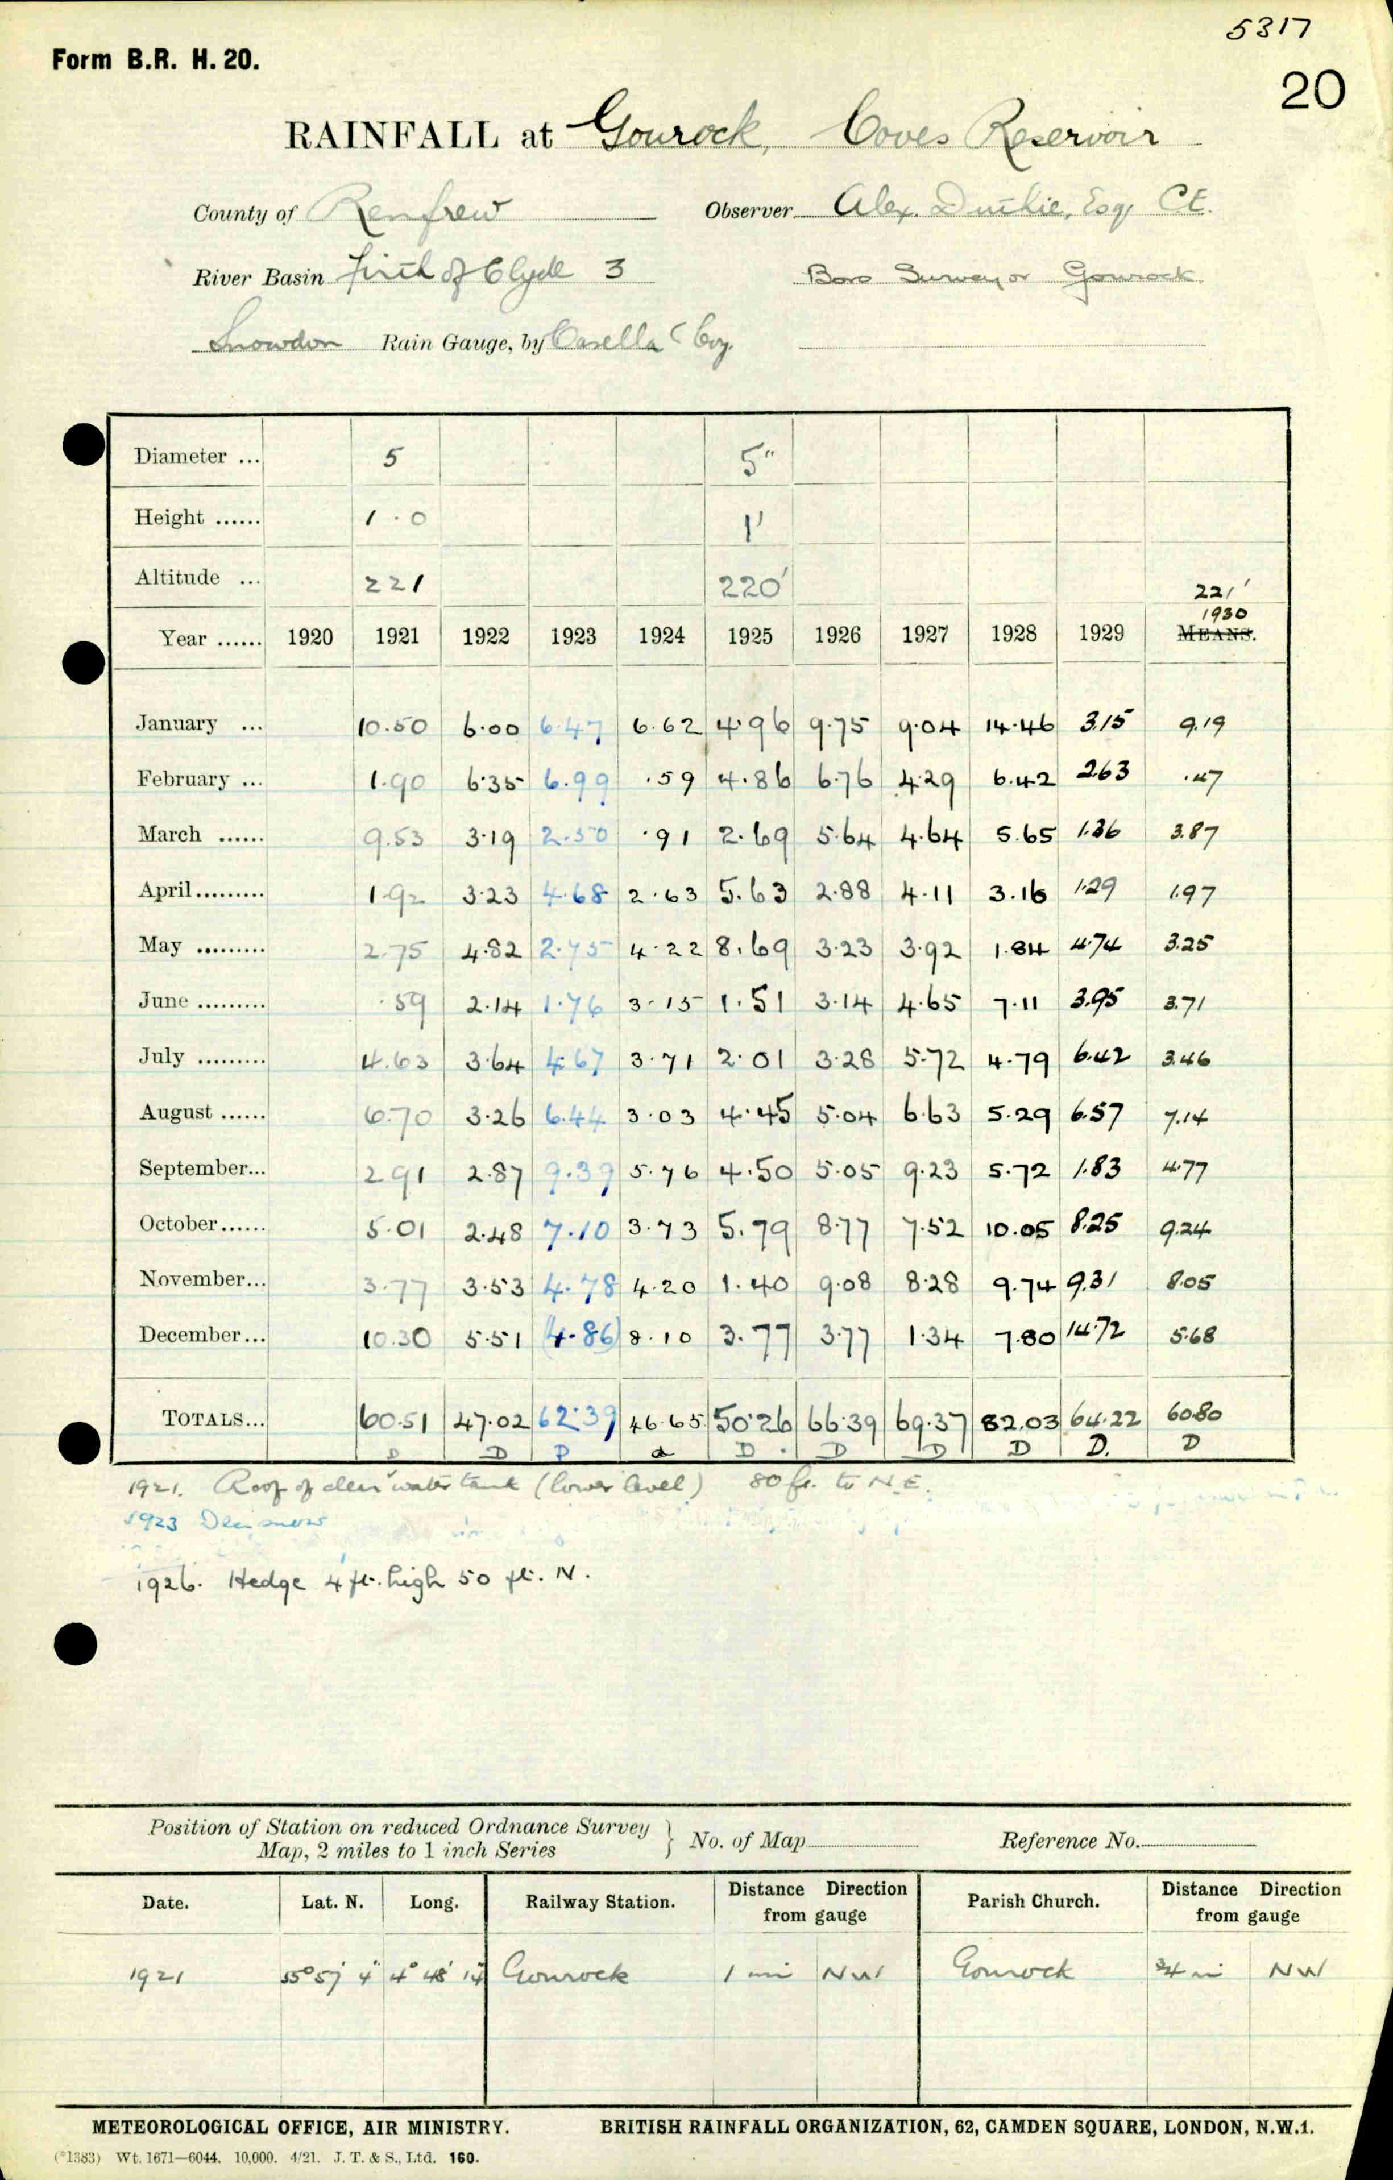 5317
Form B.R. H. 20.
20
RAINFALL at Gourock, Coves Reservoir
County of Renfrew Observer Alex. Duthie, Esq, C.E.
River Basin Firth of Clyde 3 Boro Surveyor Gourock
Snowdon Rain Gauge, by Casella & Coy.
Diameter ... 5 5"
Height ...... 1.0 1'
Altitude ... 221 220' 221'
1930
Year ...... 1920 1921 1922 1923 1924 1925 1926 1927 1928 1929 MEANS.
January ... 10.50 6.00 6.47 6.62 4.96 9.75 9.04 14.46 3.15 9.19
February ... 1.90 6.35 6.99 .59 4.86 6.76 4.29 6.42 2.63 .47
March ...... 9.53 3.19 2.50 .91 2.69 5.64 4.64 5.65 1.36 3.87
April......... 1.92 3.23 4.68 2.63 5.63 2.88 4.11 3.16 1.29 1.97
May ......... 2.75 4.82 2.75 4.22 8.69 3.23 3.92 1.84 4.74 3.25
June ......... .59 2.14 1.76 3.15 1.51 3.14 4.65 7.11 3.95 3.71
July ......... 4.63 3.64 4.67 3.71 2.01 3.28 5.72 4.79 6.42 3.46
August ...... 6.70 3.26 6.44 3.03 4.45 5.04 6.63 5.29 6.57 7.14
September... 2.91 2.87 9.39 5.76 4.50 5.05 9.23 5.72 1.83 4.77
October...... 5.01 2.48 7.10 3.73 5.79 8.77 7.52 10.05 8.25 9.24
November... 3.77 3.53 4.78 4.20 1.40 9.08 8.28 9.74 9.31 8.05
December... 10.30 5.51 (4.86) 8.10 3.77 3.77 1.34 7.80 14.72 5.68
TOTALS... 60.51 47.02 62.39 46.65 50.26 66.39 69.37 82.03 64.22 60.80
D D D D D D D D D
1921. Roof of clear water tank (lower level) 80 ft. to N.E.
1923 Dec snow
1926. Hedge 4 ft. high 50 ft. N.
Position of Station on reduced Ordnance Survey
Map, 2 miles to 1 inch Series } No. of Map Reference No.
Date. Lat. N. Long. Railway Station. Distance Direction from gauge Parish Church. Distance Direction from gauge
1921 55° 57' 4" 4° 48' 14" Gourock 1 mi NW Gourock 3/4 mi NW
METEOROLOGICAL OFFICE, AIR MINISTRY. BRITISH RAINFALL ORGANIZATION, 62, CAMDEN SQUARE, LONDON, N.W.1.
(*1383) Wt. 1671—6044. 10,000. 4/21. J. T. & S., Ltd. 160.